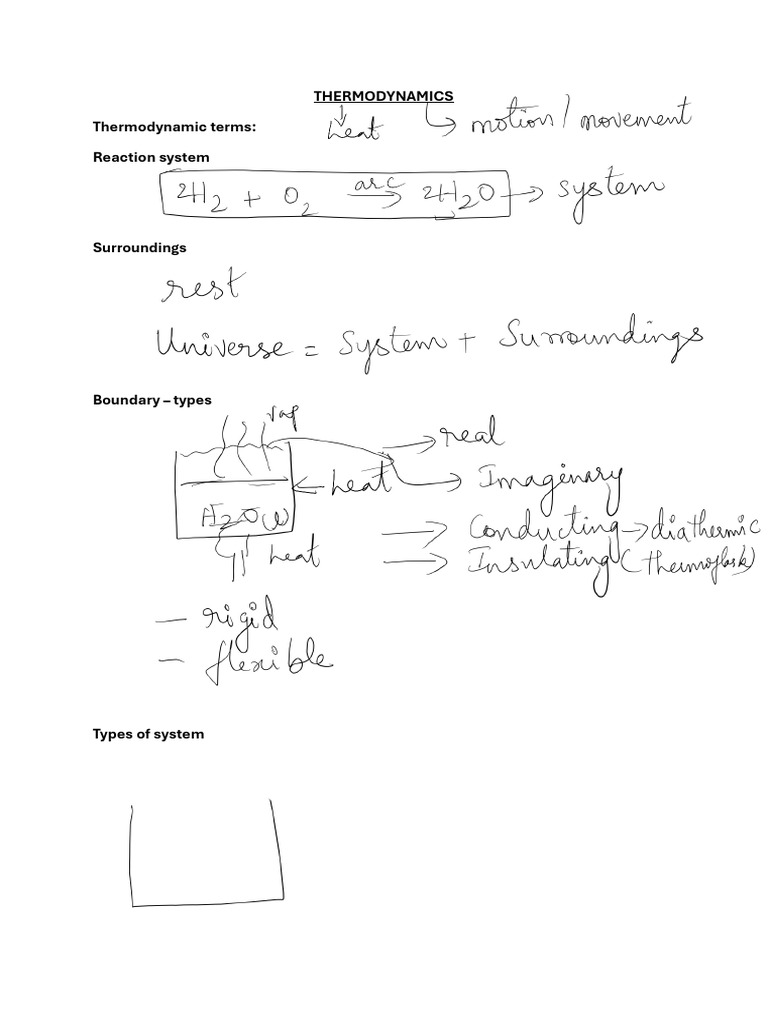 THERMODYNAMICS
heat motion / movement
Thermodynamic terms:
Reaction system
2H2 + O2 arc → 2H2O → system
Surroundings
rest
Universe = System + Surroundings
Boundary – types
vap
→ real
← heat → Imaginary
H2O(l) → Conducting → diathermic
heat → Insulating (thermoflask)
— rigid
— flexible
Types of system